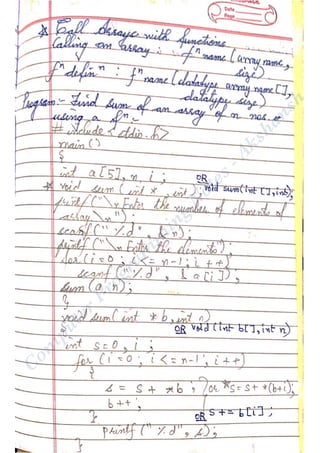 Date
Page
* Call Arrays with functions
Calling an array : fⁿ name (array name, size)
fⁿ defiⁿ : fⁿ name (datatype array name [ ], datatype size)
Program:- Find sum of an array of n nos. using a fⁿ.
# include <stdio.h>
main ( )
{
int a [5], n, i ;
* void sum (int *, int) ; OR void sum (int [ ], int);
printf ("\n Enter the number of elements of
array \n");
scanf (" %d", & n);
printf ("\n Enter the elements");
for (i = 0 ; i <= n-1 ; i + +)
scanf (" %d", & a [i]);
sum (a, n);
}
void sum (int * b, int n)
OR void (int b[ ], int n)
{
int s = 0, i ;
for (i = 0 ; i <= n-1 ; i ++)
{
s = s + *b ; or *s = s + *(b+i);
b ++ ;
} OR s += b[i] ;
printf (" %d", s);
}